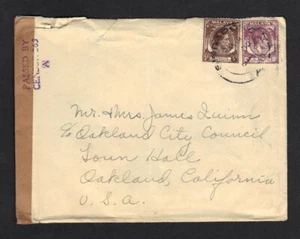 PASSED BY
CENSOR 
MALAYA
MALAYA
Mr. & Mrs. James Quinn
c/o Oakland City Council
Town Hall
Oakland, California
U.S.A.